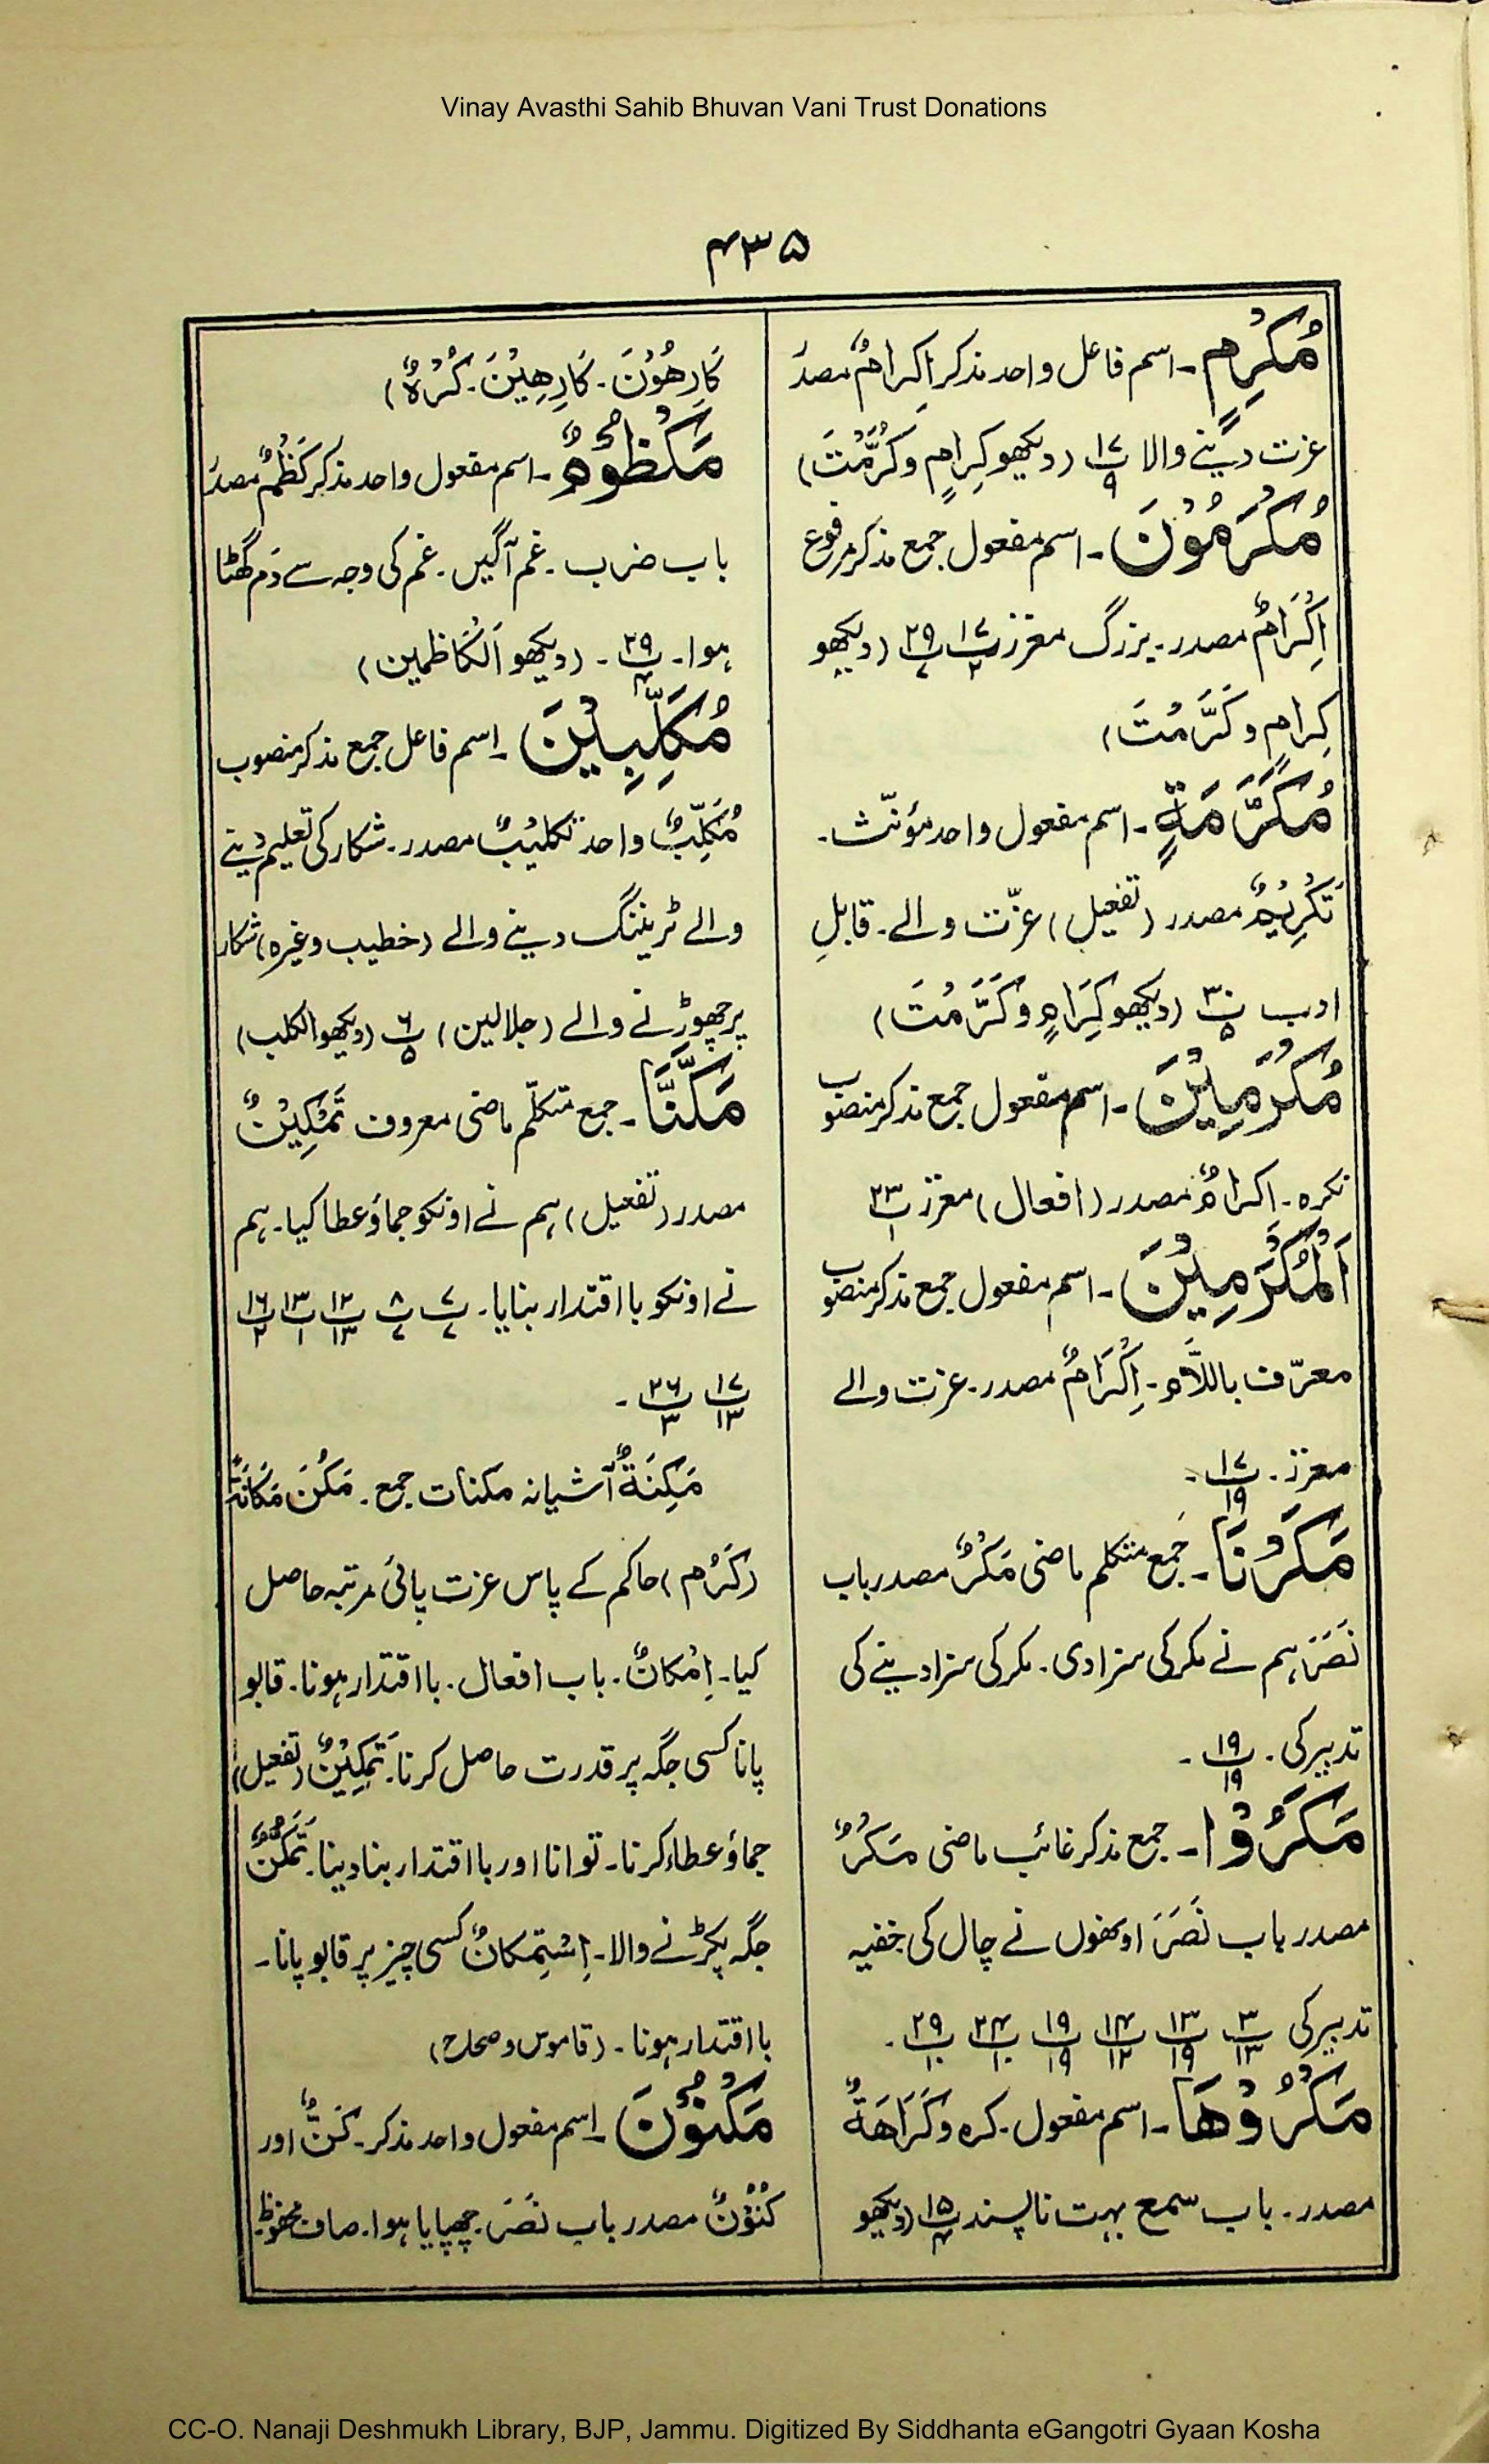 Vinay Avasthi Sahib Bhuvan Vani Trust Donations
۴۳۵
مُکْرِمٍ۔ اسم فاعل واحد مذکر اِکرامٌ مصدَر
عزت دینے والا پ۱۷/۹ (دیکھو کِرامٍ وکَرَّمْتَ)
مُکْرَمُوْنَ۔ اسم مفعول جمع مذکر مرفوع
اِکْرَامٌ مصدر۔ بزرگ معزز پ۱۷/۲ پ۲۹/۷ (دیکھو
کِرامٍ وکَرَّمْتَ)
مُکَرَّمَةٍ۔ اسم مفعول واحد مؤنّث۔
تَکْرِیْمٌ مصدر (تفعیل) عزّت والے۔ قابلِ
ادب پ۳۰/۵ (دیکھو کِرَامٍ وکَرَّمْتَ)
مُکْرَمِیْنَ۔ اسم مفعول جمع مذکر منصوب
نکرہ۔ اکرامٌ مصدر (افعال) معزز پ۲۳/۱
اَلْمُکْرَمِیْنَ۔ اسم مفعول جمع مذکر منصوب
معرّف باللاَّم۔ اِکْرَامٌ مصدر۔ عزت والے
معزز۔ پ۱۷/۱۹۔
مَکَرْنَا۔ جمع متکلم ماضی مَکْرٌ مصدر باب
نَصَرَ ہم نے مکر کی سزا دی۔ مکر کی سزا دینے کی
تدبیر کی۔ پ۱۹/۱۹۔
مَکَرُوْا۔ جمع مذکر غائب ماضی مَکْرٌ
مصدر باب نَصَرَ اونھوں نے چال کی خفیہ
تدبیر کی پ۳/۱۳ پ۱۳/۱۹ پ۱۴/۱۲ پ۱۹/۱۹ پ۲۴/۱۰ پ۲۹/۱۰۔
مَکْرُوْهَا۔ اسم مفعول۔ کرہ وکَرَاهَةٌ
مصدر۔ باب سمع بہت ناپسند پ۱۵/۴ (دیکھو
کَارِهُوْنَ۔ کَارِهِیْنَ۔ کُرْهٌ)
مَکْظُوْمٌ۔ اسم مفعول واحد مذکر کَظْمٌ مصدَر
باب ضرب۔ غم آگیں۔ غم کی وجہ سے دَم گُھٹا
ہوا۔ پ۲۹/۴۔ (دیکھو اَلْکَاظمین)
مُکَلِّبِیْنَ۔ اسم فاعل جمع مذکر منصوب
مُکَلِّبٌ واحد تکلیْبٌ مصدر۔ شکار کی تعلیم دینے
والے ٹریننگ دینے والے (خطیب وغیرہ) شکار
پر چھوڑنے والے (جلالین) پ۶/۵ (دیکھو الکلب)
مَکَّنَّا۔ جمع متکلّم ماضی معروف تَمْکِیْنٌ
مصدر (تفعیل) ہم نے اونکو جماؤ عطا کیا۔ ہم
نے اونکو بااقتدار بنایا۔ پ۷/۷ پ۸/۷ پ۱۲/۱۳ پ۱۳/۱ پ۱۶/۲
پ۱۷/۱۳ پ۲۶/۳۔
مَکِنَةٌ آشیانہ مکنات جمع۔ مَکُنَ مَکَانَةً
(کَرُم) حاکم کے پاس عزت پائی مرتبہ حاصل
کیا۔ اِمْکانٌ۔ باب افعال۔ بااقتدار ہونا۔ قابو
پانا کسی جگہ پر قدرت حاصل کرنا۔ تَمْکِیْنٌ (تفعیل)
جماؤ عطاء کرنا۔ توانا اور بااقتدار بنا دینا۔ تَمَکُّنٌ
جگہ پکڑنے والا۔ اِسْتِمکانٌ کسی چیز پر قابو پانا۔
بااقتدار ہونا۔ (قاموس وصحاح)
مَکْنُوْنَ۔ اسم مفعول واحد مذکر۔ کَنٌّ اور
کُنُوْنٌ مصدر باب نَصَرَ۔ چھپایا ہوا۔ صاف محفوظ
CC-O. Nanaji Deshmukh Library, BJP, Jammu. Digitized By Siddhanta eGangotri Gyaan Kosha